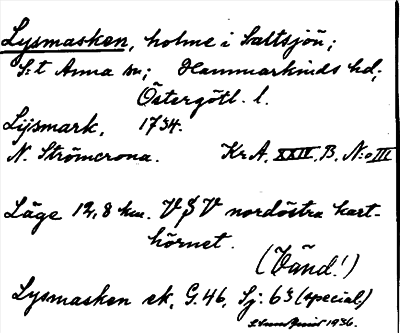 Lysmasken, holme i Saltsjön;
S:t Anna sn; Hammarkinds hd,
Östergötl. l.
Lijsmark, 1734.
N. Strömcrona. Kr A, XXIV, B, N:o III
Läge 12,8 km. VSV nordöstra kart-
hörnet.
(Vänd!)
Lysmasken ek. G. 46, Sj: 63 (special)
1936.